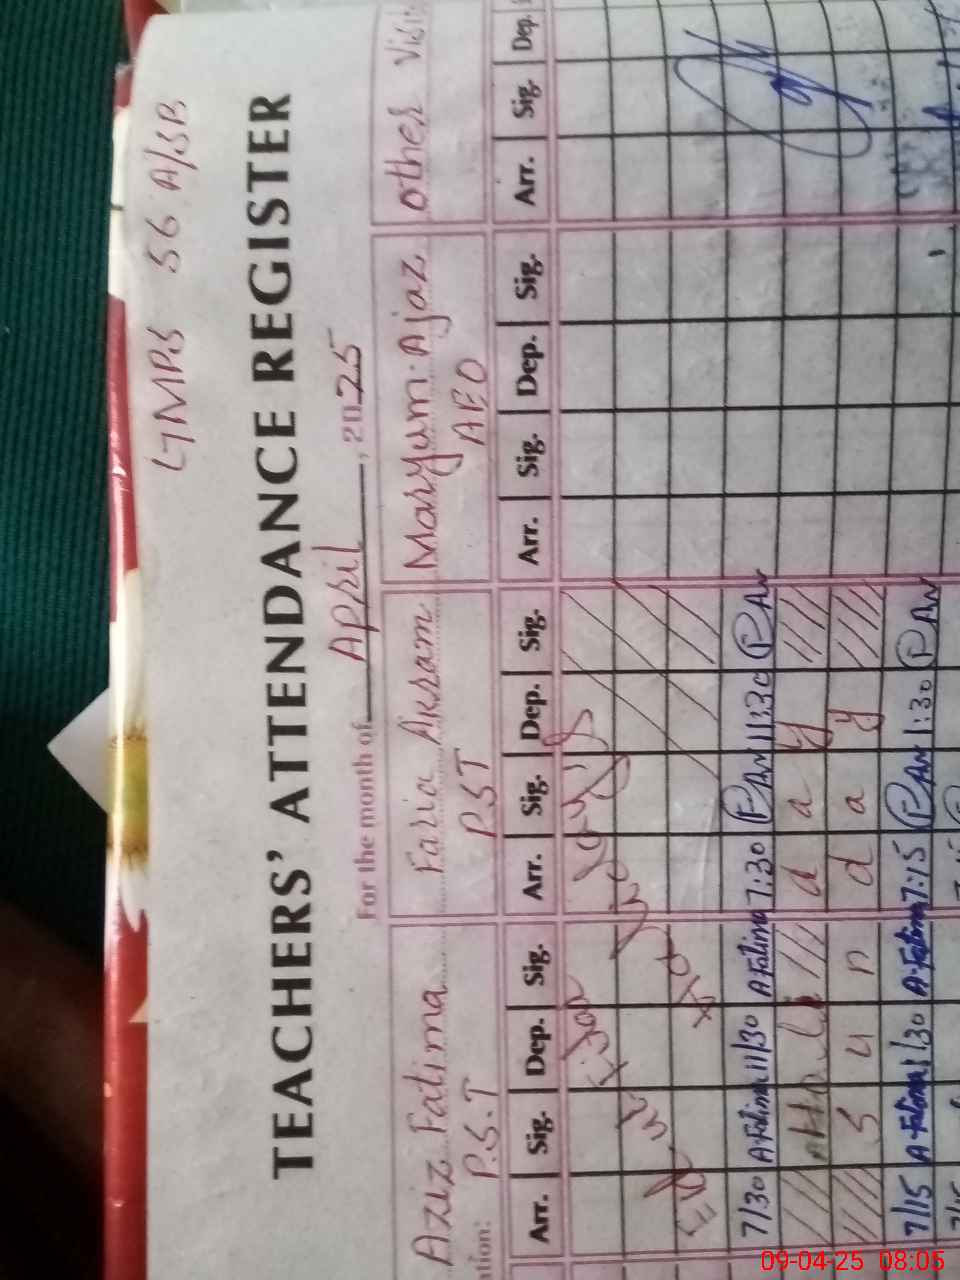 GMPS 56 A/SB
TEACHERS' ATTENDANCE REGISTER
For the month of April, 2025
Aziz Fatima Faria Akram Maryum Ajaz other Visit
ation: P.S.T P.S.T AEO
Arr. Sig. Dep. Sig. Arr. Sig. Dep. Sig. Arr. Sig. Dep. Sig. Arr. Sig. Dep.
7/30 A.Fatima 11/30 A.Fatima 7:30 11:30
d a y
S u n d a y
7/15 A.Fatima 1/30 A.Fatima 7:15 1:30
09-04-25 08:05